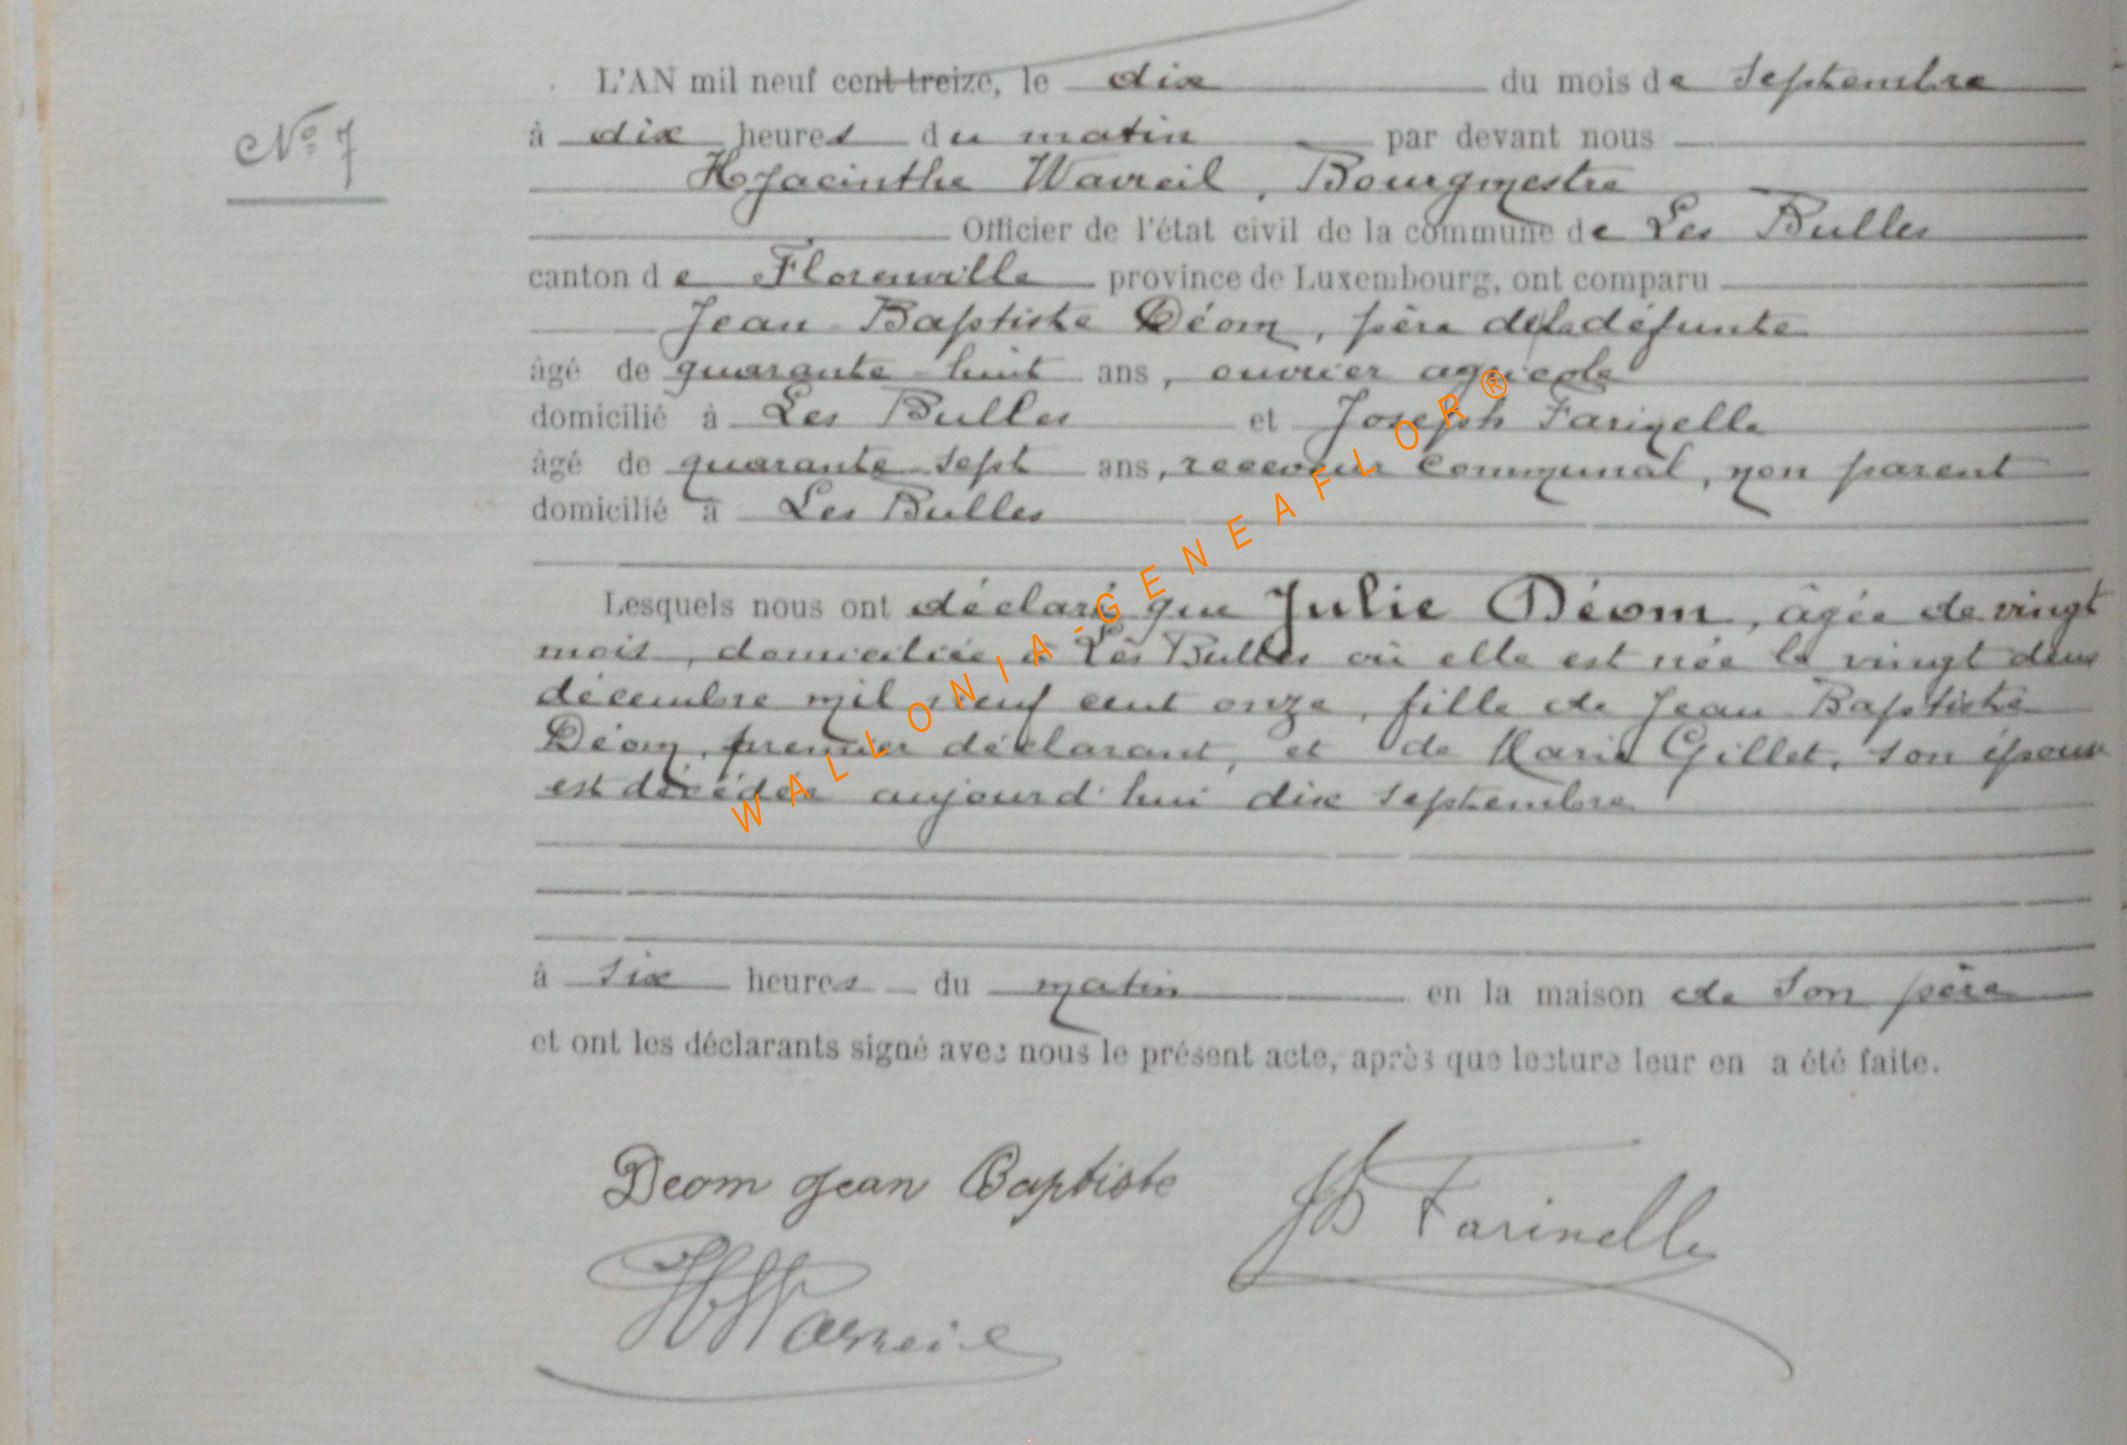 L'AN mil neuf cent treize, le dix du mois de Septembre
N° 7
à dix heures du matin par devant nous
Hyacinthe Wavreil, Bourgmestre
Officier de l'état civil de la commune de Les Bulles
canton de Florenville province de Luxembourg, ont comparu
Jean Baptiste Déom, père de la défunte
âgé de quarante-huit ans, ouvrier agricole
domicilié à Les Bulles et Joseph Farinelle
âgé de quarante sept ans, receveur communal, non parent
domicilié à Les Bulles
Lesquels nous ont déclaré que Julie Déom, âgée de vingt
mois, domiciliée à Les Bulles où elle est née le vingt deux
décembre mil neuf cent onze, fille de Jean Baptiste
Déom, premier déclarant, et de Marie Gillet, son épouse
est décédée aujourd'hui dix septembre
à six heures du matin en la maison de son père
et ont les déclarants signé avec nous le présent acte, après que lecture leur en a été faite.
Deom Jean Baptiste
Farinelle
HWavreil
WALLONIA-GENEAFLOR®